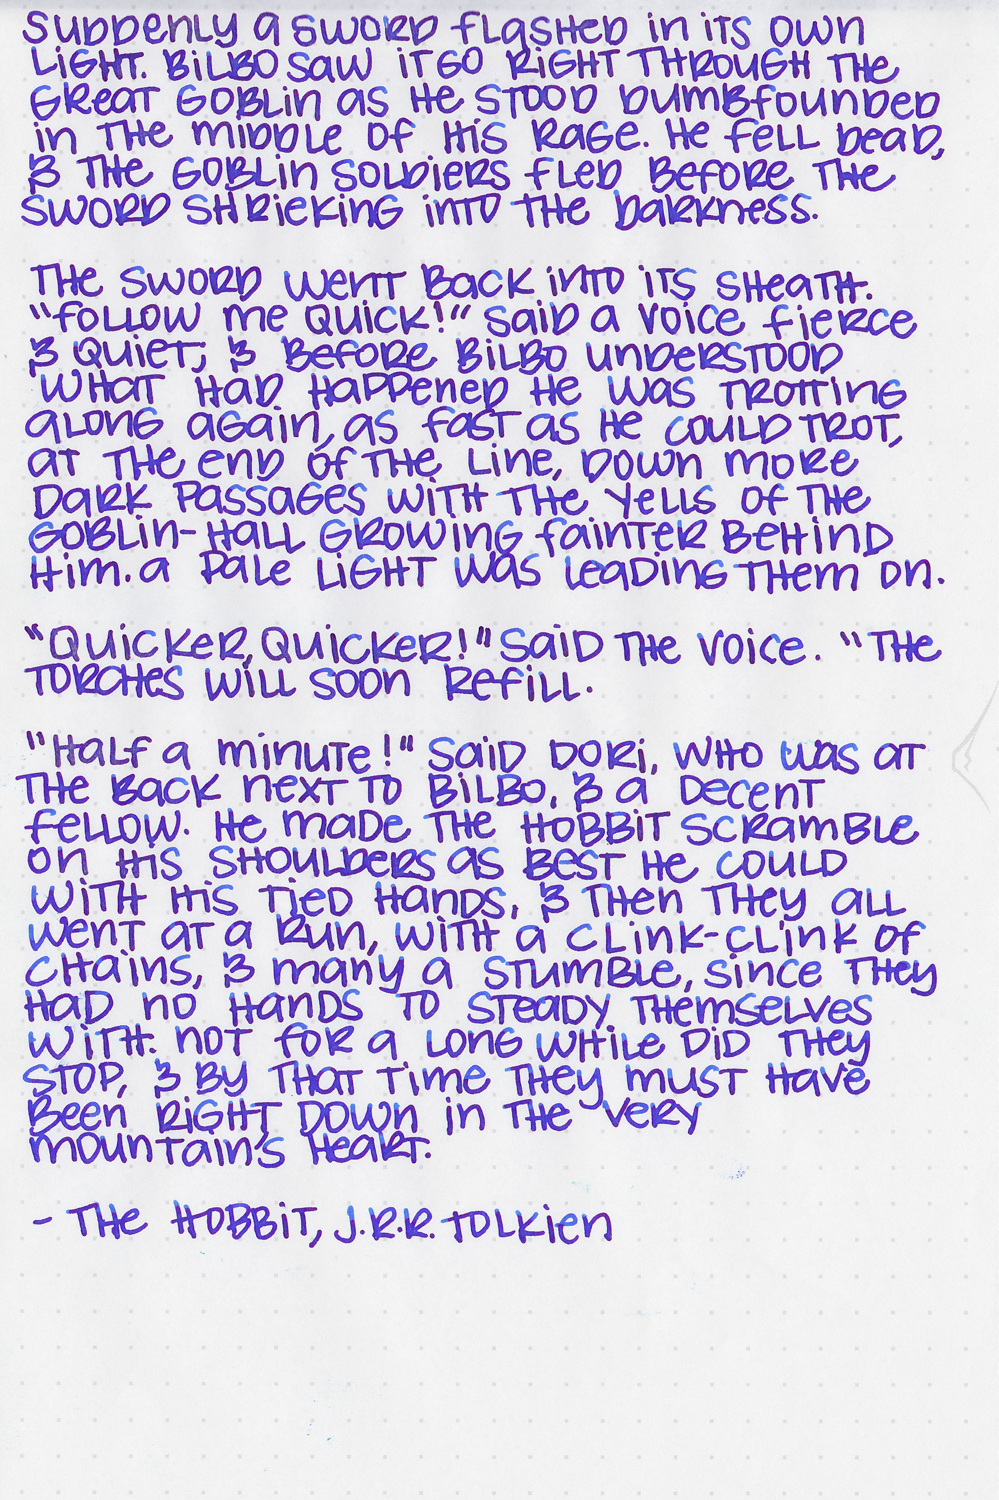 Suddenly a sword flashed in its own
light. Bilbo saw it go right through the
Great Goblin as he stood dumbfounded
in the middle of his rage. He fell dead,
& the goblin soldiers fled before the
sword shrieking into the darkness.
The sword went back into its sheath.
"Follow me quick!" said a voice fierce
& quiet; & before Bilbo understood
what had happened he was trotting
along again, as fast as he could trot,
at the end of the line, down more
dark passages with the yells of the
goblin-hall growing fainter behind
him. A pale light was leading them on.
"Quicker, quicker!" said the voice. "The
torches will soon refill.
"Half a minute!" said Dori, who was at
the back next to Bilbo, & a decent
fellow. He made the hobbit scramble
on his shoulders as best he could
with his tied hands, & then they all
went at a run, with a clink-clink of
chains, & many a stumble, since they
had no hands to steady themselves
with. Not for a long while did they
stop, & by that time they must have
been right down in the very
mountain's heart.
- The Hobbit, J.R.R. Tolkien